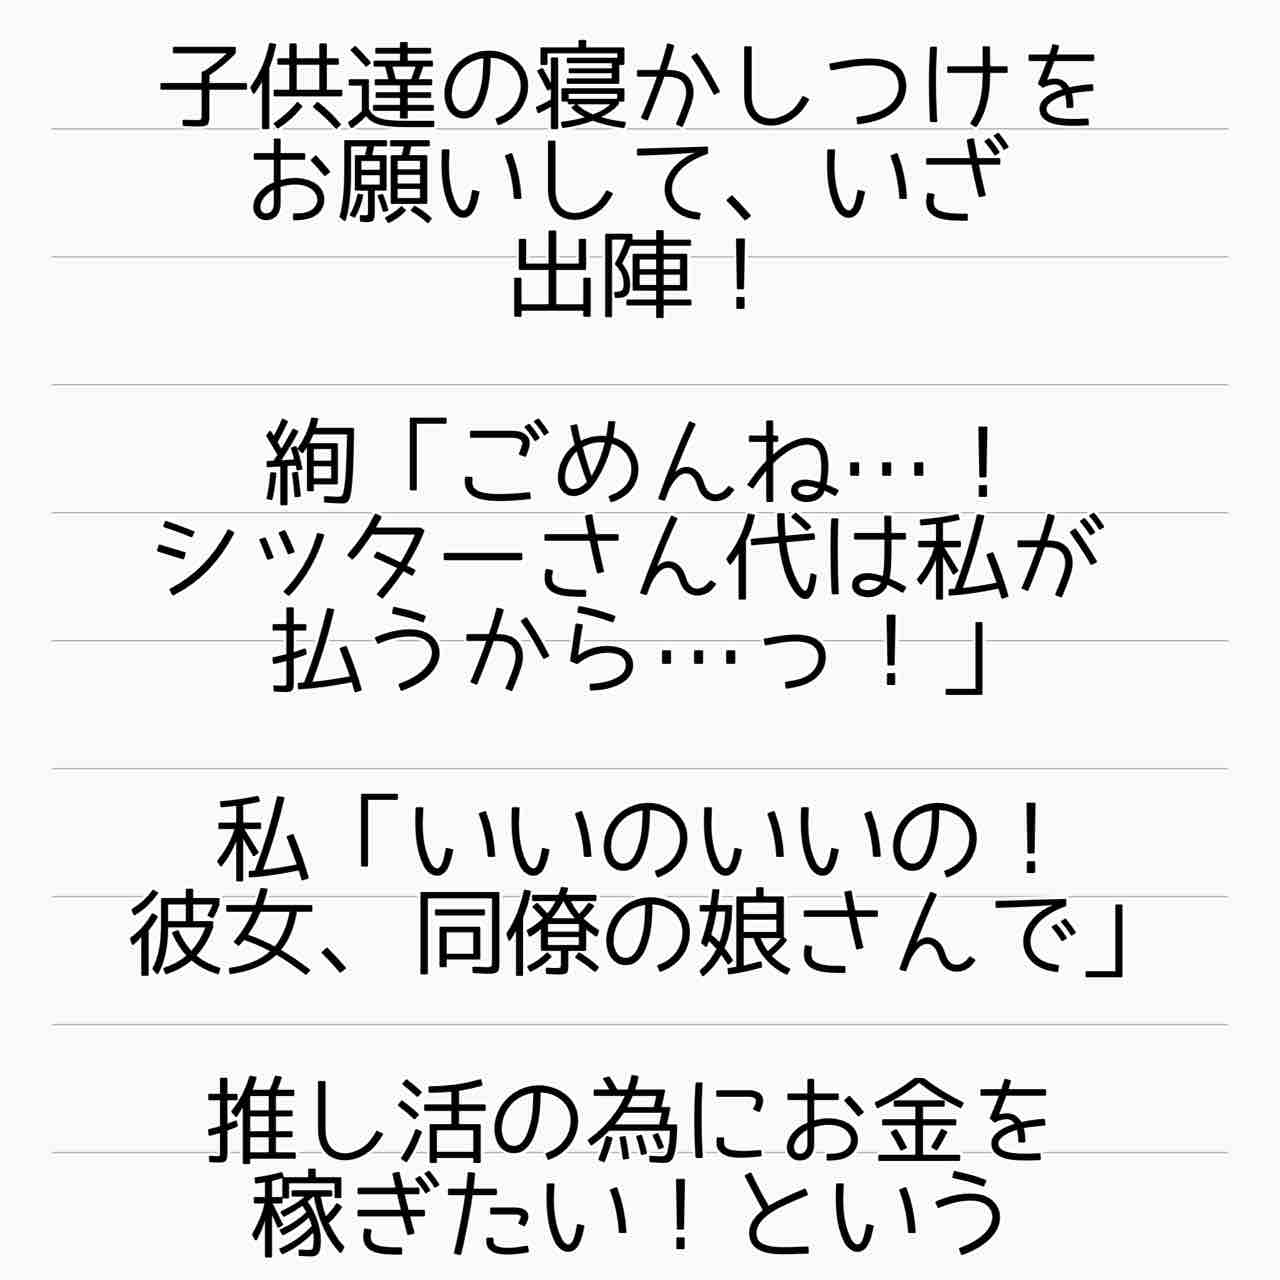 子供達の寝かしつけを
お願いして、いざ
出陣！
絢「ごめんね…！
シッターさん代は私が
払うから…っ！」
私「いいのいいの！
彼女、同僚の娘さんで」
推し活の為にお金を
稼ぎたい！という